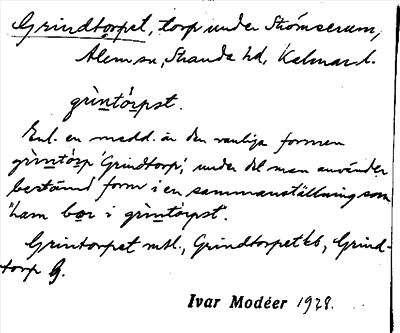 Grindtorpet, torp under Strömserum,
Ålem sn, Stranda hd, Kalmar l.
grìntórpst.
Enl. en medd. är den vanliga formen
grìntórp 'Grindtorp', under det man använder
bestämd form i en sammanställning som
"han bor i grìntórpst".
Grintorpet mtl., Grindtorpet kb, Grind-
torp G.
Ivar Modéer 1928.